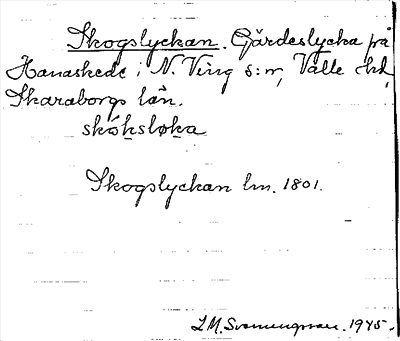 Skogslyckan. Gärdeslycka på
Hanaskede i N. Ving s:n, Valle hd,
Skaraborgs län.
skóksløka
Skogslyckan lm. 1801.
1945.